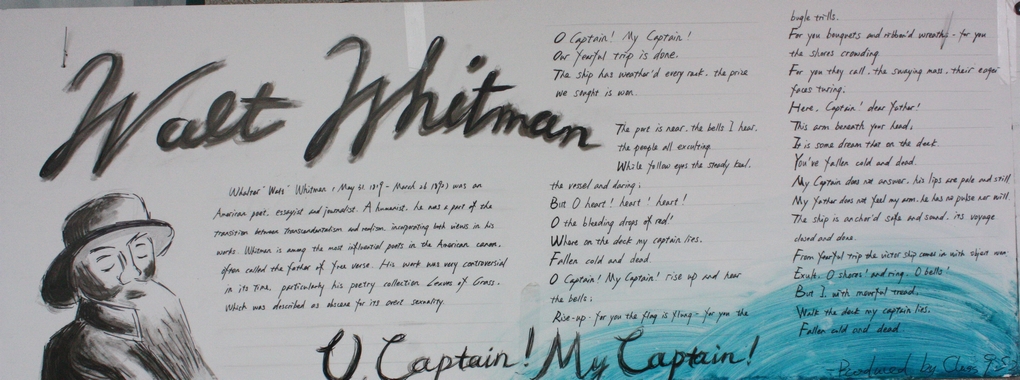 Walt Whitman
Whalter "Walt" Whitman (May 31. 1819 - March 26 1892) was an
American poet, essayist and journalist. A humanist, he was a part of the
transition between Transcendentalism and realism, incorporating both views in his
works. Whitman is among the most influential poets in the American canon,
often called the father of free verse. His work was very controversial
in its time, particularly his poetry collection Leaves of Grass,
Which was described as obscene for its overt sexuality.
O Captain! My Captain!
O Captain! My Captain!
Our fearful trip is done.
The ship has weather'd every rack. the prize
we sought is won.
The port is near. the bells I hear.
the people all exculting.
While follow eyes the steady keel.
the vessel and daring;
But O heart! heart! heart!
O the bleeding drops of red!
Where on the deck my captain lies.
Fallen cold and dead.
O Captain! My Captain! rise up and hear
the bells;
Rise-up - for you the flag is flung - for you the
bugle trills.
For you bouquets and ribbon'd wreaths - for you
the shores crowding.
For you they call. the swaying mass. their eager
faces turing.
Here. Captain! dear father!
This arm beneath your head;
It is some dream that on the deck.
You've fallen cold and dead.
My Captain does not answer. his lips are pale and still.
My father does not feel my arm. he has no pulse nor will.
The ship is anchor'd safe and sound. its voyage
closed and done.
From fearful trip the victor ship comes in with object won.
Exult. O shores! and ring. O bells!
But I. with mournful tread.
Walk the deck my captain lies.
Fallen cold and dead.
Produced by Class